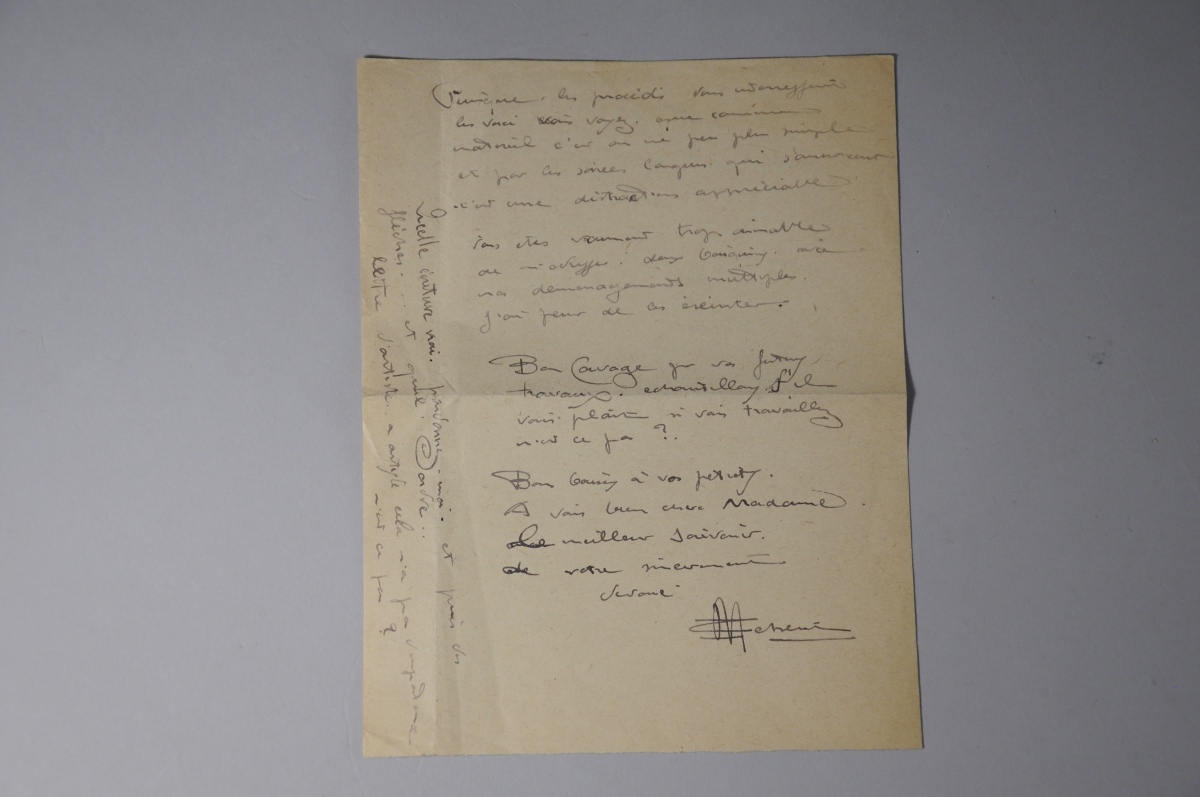 Puisque les procédés vous intéressent
les voici vous voyez que comme
matériel c'est on ne peu plus simple
et par les soirées longues qui s'annoncent
c'est une distractions appréciable
Vous êtes vraiment trop aimable
de m'adresser deux coussins avec
nos déménagements multiples.
j'ai peur de les éreinter.
Bon Courage pr vos futurs
travaux. echantillons S'il
vous plait si vous travaillez
n'est ce pas ?.
Bon baisers à vos petits.
A vous bien chere Madame.
Le meilleur Souvenir.
de votre sincerement
devoué
Quelle écriture moi. pardonnez-moi. et puis des
flèches... et quel. Ordre..
lettre d'artiste. a artiste cela n'a pas d'importance
n'est ce pas ?